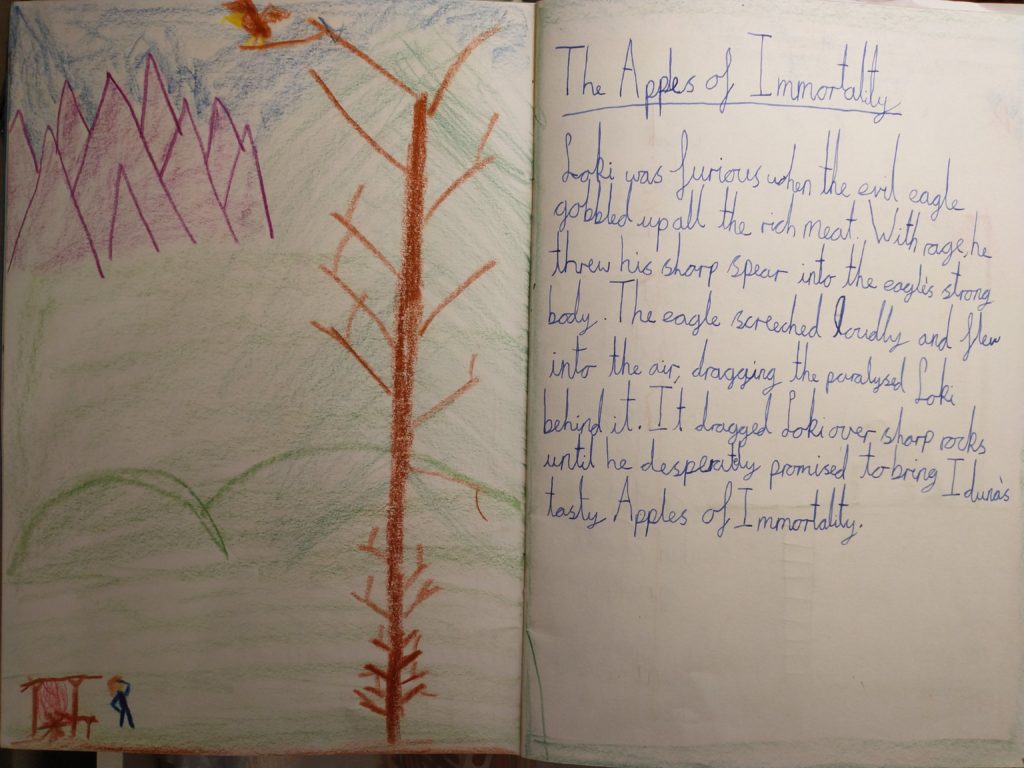 The Apples of Immortality
Loki was furious when the evil eagle
gobbled up all the rich meat. With rage, he
threw his sharp spear into the eagle's strong
body. The eagle screeched loudly and flew
into the air, dragging the paralysed Loki
behind it. It dragged Loki over sharp rocks
until he desperatly promised to bring Iduna's
tasty Apples of Immortality.